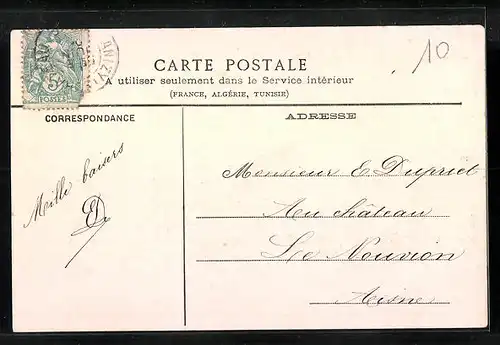 CARTE POSTALE
A utiliser seulement dans le Service intérieur
(FRANCE, ALGÉRIE, TUNISIE)
10
5
POSTES
ANIZY
CORRESPONDANCE
Mille baisers
ED
ADRESSE
Monsieur E. Dupriet
Au château
Le Nouvion
Aisne